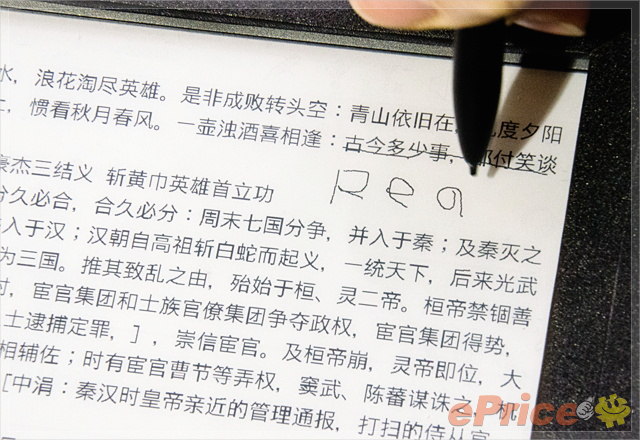 水，浪花淘尽英雄。是非成败转头空：青山依旧在，几度夕阳
惯看秋月春风。一壶浊酒喜相逢：古今多少事，都付笑谈
Rea
豪杰三结义 斩黄巾英雄首立功
分久必合，合久必分：周末七国分争，并入于秦；及秦灭之
并入于汉；汉朝自高祖斩白蛇而起义，一统天下，后来光武
为三国。推其致乱之由，殆始于桓、灵二帝。桓帝禁锢善
时，宦官集团和士族官僚集团争夺政权，宦官集团得势，
士逮捕定罪，]，崇信宦官。及桓帝崩，灵帝即位，大
相辅佐；时有宦官曹节等弄权，窦武、陈蕃谋诛之，机
[中涓：秦汉时皇帝亲近的管理通报，打扫的侍从官
ePrice